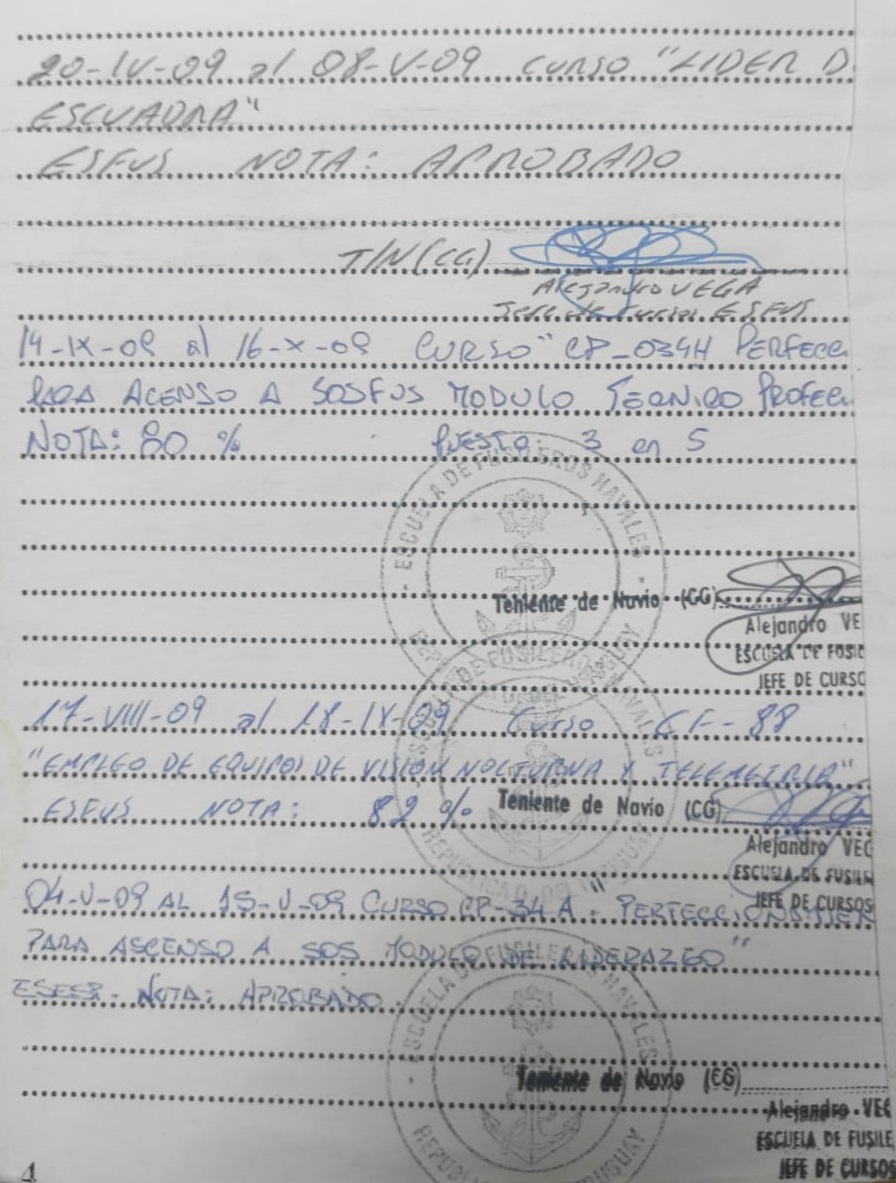 20-IV-09 al 08-V-09 CURSO "LIDER D
ESCUADRA"
ESFUS NOTA: APROBADO
T/N(CG)
Alejandro VEGA
Jefe de Cursos ESFUS
14-IX-09 al 16-X-09 CURSO "CP-034H PERFECC
PARA ACENSO A SOSFUS MODULO TECNICO PROFEC
NOTA: 80 % PUESTO: 3 en 5
ESCUELA DE FUSILEROS NAVALES
REPUBLICA DEL URUGUAY
Teniente de Navio (CG)
Alejandro VE
ESCUELA DE FUSIL
JEFE DE CURSO
17-VIII-09 al 18-IX-09 Curso CF-88
"EMPLEO DE EQUIPOS DE VISION NOCTURNA Y TELEMETRIA"
ESFUS NOTA: 82 %
ESCUELA DE FUSILEROS NAVALES
REPUBLICA DEL URUGUAY
Teniente de Navio (CG)
Alejandro VEG
ESCUELA DE FUSILE
JEFE DE CURSOS
04-V-09 AL 15-V-09 CURSO CP-34 A "PERFECCIONAMIEN
PARA ASCENSO A SOS MODULO DE LIDERAZGO"
ESESP - NOTA: APROBADO.
ESCUELA DE FUSILEROS NAVALES
REPUBLICA DEL URUGUAY
Teniente de Navio (CG)
Alejandro VEG
ESCUELA DE FUSILE
JEFE DE CURSOS
4